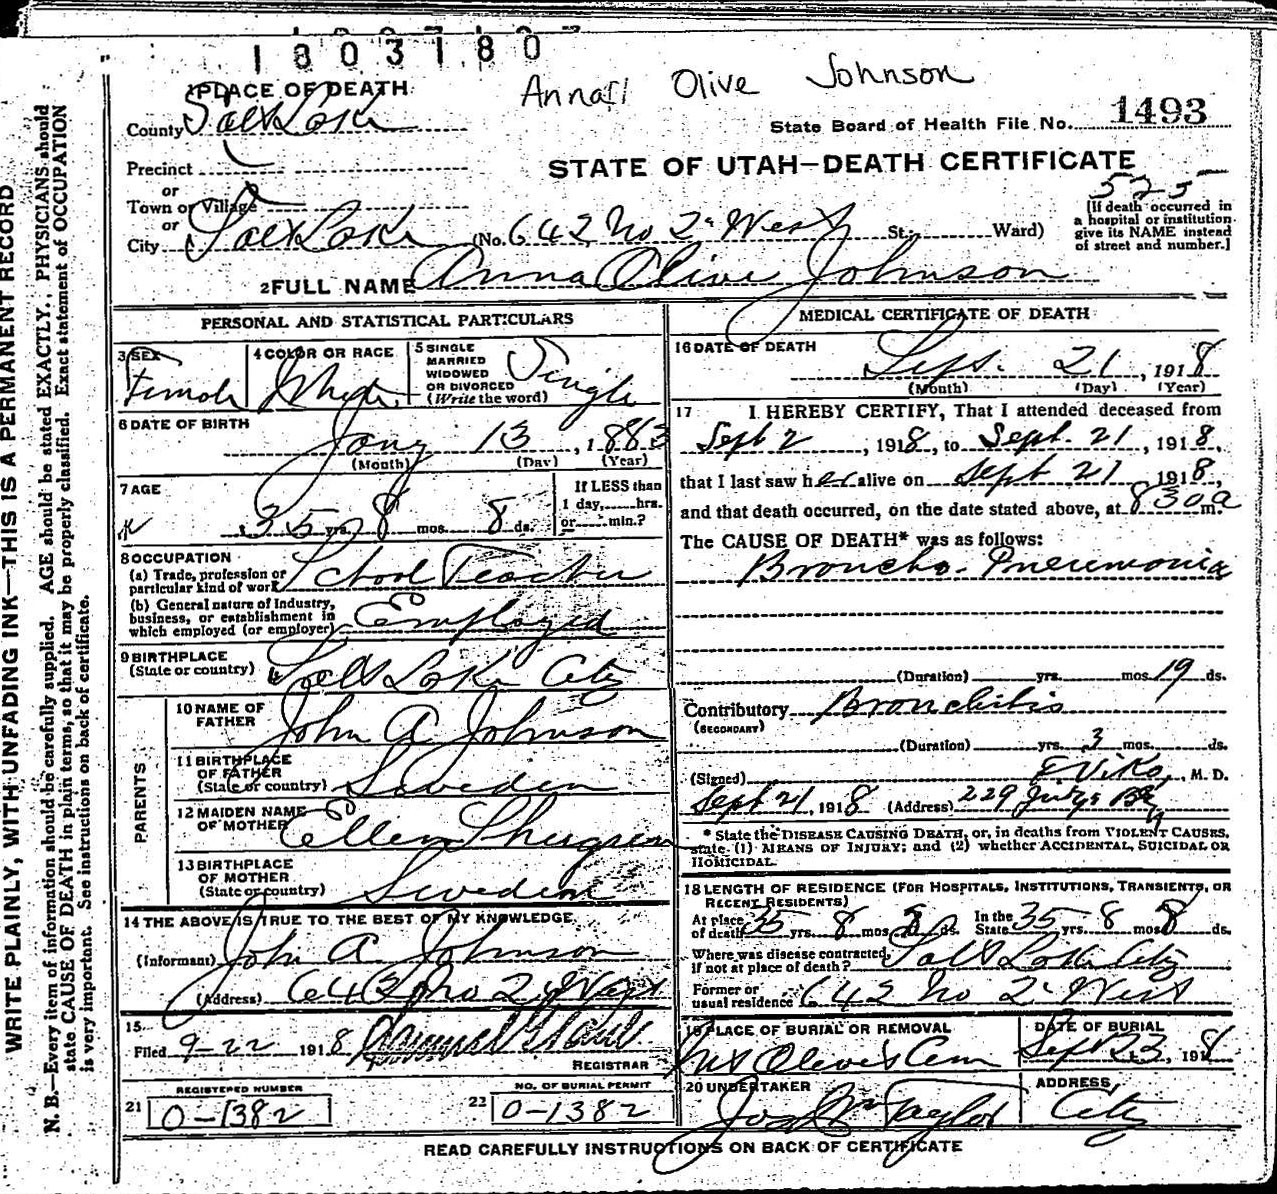 1803780
Annail Olive Johnson
1 PLACE OF DEATH
County Salt Lake
State Board of Health File No. 1493
Precinct
STATE OF UTAH—DEATH CERTIFICATE
or
Town or Village
525
[If death occurred in
a hospital or institution
give its NAME instead
of street and number.]
or
City Salt Lake (No. 642 No 2d West St; Ward)
2 FULL NAME Anna Olive Johnson
PERSONAL AND STATISTICAL PARTICULARS
3 SEX Female
4 COLOR OR RACE White
5 SINGLE
MARRIED
WIDOWED
OR DIVORCED
(Write the word) Single
6 DATE OF BIRTH
Jany 13, 1883
(Month) (Day) (Year)
7 AGE
35 yrs. 8 mos. 8 ds.
If LESS than
1 day, hrs.
or min.?
8 OCCUPATION
(a) Trade, profession or
particular kind of work School Teacher
(b) General nature of Industry,
business, or establishment in
which employed (or employer) Employed
9 BIRTHPLACE
(State or country) Salt Lake City
PARENTS
10 NAME OF
FATHER John A Johnson
11 BIRTHPLACE
OF FATHER
(State or country) Sweden
12 MAIDEN NAME
OF MOTHER Ellen
13 BIRTHPLACE
OF MOTHER
(State or country) Sweden
14 THE ABOVE IS TRUE TO THE BEST OF MY KNOWLEDGE
(Informant) John A. Johnson
(Address) 642 No 2d West
15
Filed 9-22 1918
REGISTRAR
REGISTERED NUMBER
21 0-1382
NO. OF BURIAL PERMIT
22 0-1382
MEDICAL CERTIFICATE OF DEATH
16 DATE OF DEATH
Sept. 21, 1918
(Month) (Day) (Year)
17 I HEREBY CERTIFY, That I attended deceased from
Sept 2, 1918, to Sept. 21, 1918,
that I last saw her alive on Sept 21 1918,
and that death occurred, on the date stated above, at 830a m.
The CAUSE OF DEATH* was as follows:
Broncho-Pneumonia
(Duration) yrs. mos. 19 ds.
Contributory Bronchitis
(SECONDARY)
(Duration) yrs. 3 mos. ds.
(Signed) E. Viko, M. D.
Sept 21, 1918 (Address) 229
* State the DISEASE CAUSING DEATH, or, in deaths from VIOLENT CAUSES,
state (1) MEANS OF INJURY; and (2) whether ACCIDENTAL, SUICIDAL OR
HOMICIDAL.
18 LENGTH OF RESIDENCE (FOR HOSPITALS, INSTITUTIONS, TRANSIENTS, OR
RECENT RESIDENTS)
At place
of death 35 yrs. 8 mos. 8 ds. In the
State 35 yrs. 8 mos. 8 ds.
Where was disease contracted,
if not at place of death? Salt Lake City
Former or
usual residence 642 No 2d West
19 PLACE OF BURIAL OR REMOVAL
Mt Olivet Cem
DATE OF BURIAL
Sept 23, 1918
20 UNDERTAKER
Jos Wm Taylor
ADDRESS,
City
READ CAREFULLY INSTRUCTIONS ON BACK OF CERTIFICATE
WRITE PLAINLY, WITH UNFADING INK—THIS IS A PERMANENT RECORD
N. B.—Every item of information should be carefully supplied. AGE should be stated EXACTLY. PHYSICIANS should
state CAUSE OF DEATH in plain terms, so that it may be properly classified. Exact statement of OCCUPATION
is very important. See instructions on back of certificate.